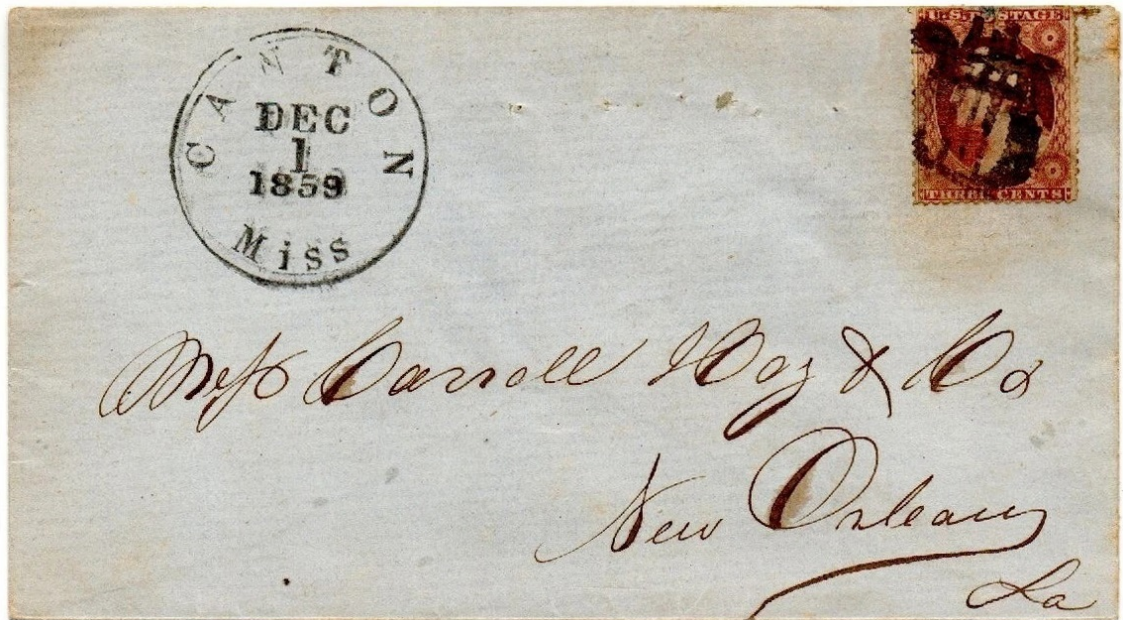 CANTON
DEC
1
1859
Miss
U.S. POSTAGE
THREE CENTS
Mess Carroll Hoy & Co
New Orleans
La